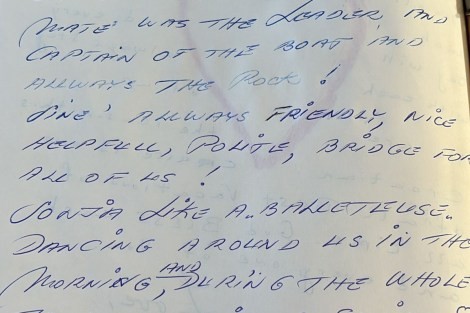 MATE' WAS THE LEADER AND
CAPTAIN OF THE BOAT AND
ALLWAYS THE ROCK!
SINE' ALLWAYS FRIENDLY, NICE
HELPFULL, POLITE, BRIDGE FOR
ALL OF US!
SONJA LIKE A „BALLETEUSE„
DANCING AROUND US IN THE
MORNING, AND DURING THE WHOLE